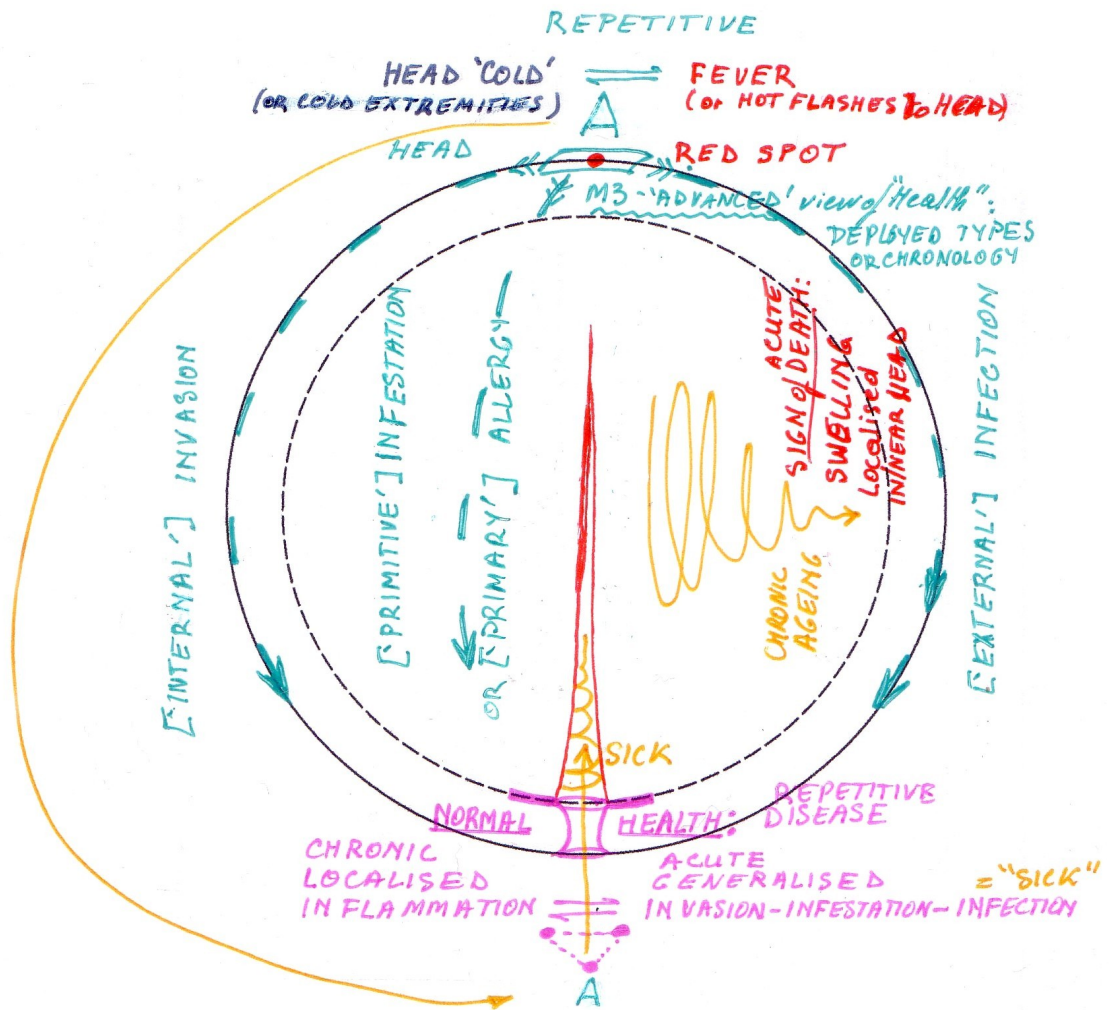 REPETITIVE
HEAD 'COLD' ⇌ FEVER
(OR COLD EXTREMITIES) (OR HOT FLASHES to HEAD)
A
HEAD RED SPOT
M3-'ADVANCED' view of "Health":
DEPLOYED TYPES
OR CHRONOLOGY
['INTERNAL'] INVASION
['PRIMITIVE'] INFESTATION
OR ['PRIMARY'] ALLERGY
ACUTE
SIGN of DEATH:
SWELLING
Localised
IN/NEAR HEAD
['EXTERNAL'] INFECTION
CHRONIC
AGEING
SICK
NORMAL HEALTH: REPETITIVE
DISEASE
CHRONIC
LOCALISED
INFLAMMATION ⇌
ACUTE
GENERALISED
INVASION-INFESTATION-INFECTION
= "SICK"
A